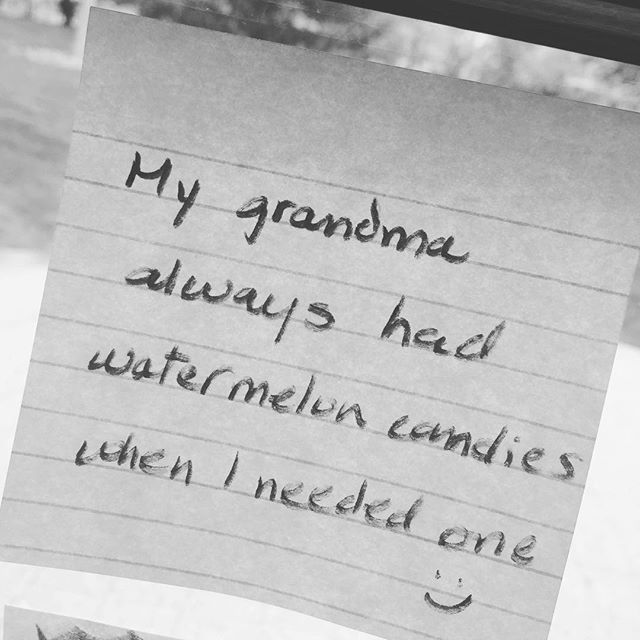 My grandma
always had
watermelon candies
when I needed one